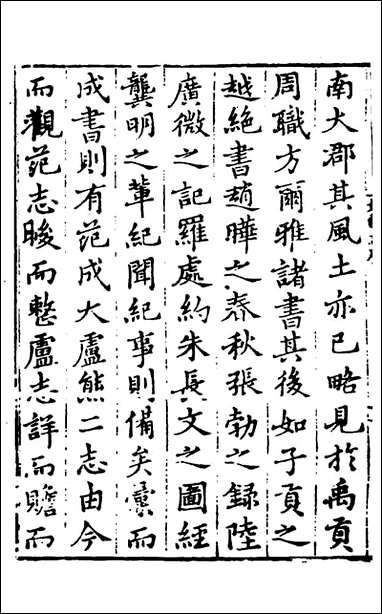 南大郡其風土亦已略見於禹貢
周職方爾雅諸書其後如子貢之
越絶書趙曄之春秋張勃之録陸
廣微之記羅處約朱長文之圖經
龔明之軰紀聞紀事則備矣彚而
成書則有范成大盧熊二志由今
而觀范志晙而整盧志詳而贍而